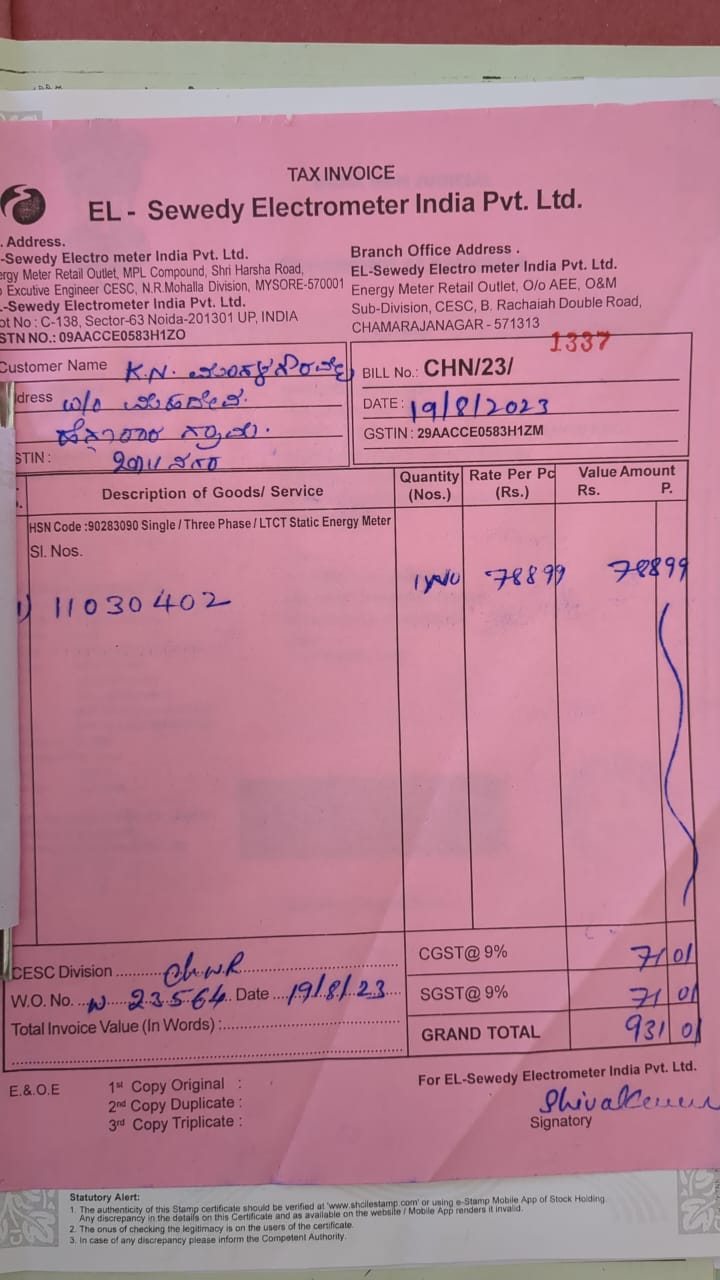 TAX INVOICE
EL - Sewedy Electrometer India Pvt. Ltd.
. Address.
-Sewedy Electro meter India Pvt. Ltd.
ergy Meter Retail Outlet, MPL Compound, Shri Harsha Road,
Excutive Engineer CESC, N.R.Mohalla Division, MYSORE-570001
-Sewedy Electrometer India Pvt. Ltd.
ot No : C-138, Sector-63 Noida-201301 UP, INDIA
STN NO.: 09AACCE0583H1ZO
Branch Office Address .
EL-Sewedy Electro meter India Pvt. Ltd.
Energy Meter Retail Outlet, O/o AEE, O&M
Sub-Division, CESC, B. Rachaiah Double Road,
CHAMARAJANAGAR - 571313
1337
Customer Name K.N.
dress w/o
STIN :
BILL No.: CHN/23/
DATE : 19/8/2023
GSTIN : 29AACCE0583H1ZM
Description of Goods/ Service
Quantity (Nos.)
Rate Per Pc (Rs.)
Value Amount
Rs. P.
HSN Code :90283090 Single / Three Phase / LTCT Static Energy Meter
Sl. Nos.
1) 11030402
1 No 78899 78899
CESC Division
W.O. No. 23564 Date 19/8/23
Total Invoice Value (In Words) :
CGST@ 9% 71 01
SGST@ 9% 71 01
GRAND TOTAL 931 01
E.& O.E
1st Copy Original :
2nd Copy Duplicate :
3rd Copy Triplicate :
For EL-Sewedy Electrometer India Pvt. Ltd.
Signatory
Statutory Alert:
1. The authenticity of this Stamp certificate should be verified at 'www.shcilestamp.com' or using e-Stamp Mobile App of Stock Holding.
Any discrepancy in the details on this Certificate and as available on the website / Mobile App renders it invalid.
2. The onus of checking the legitimacy is on the users of the certificate.
3. In case of any discrepancy please inform the Competent Authority.